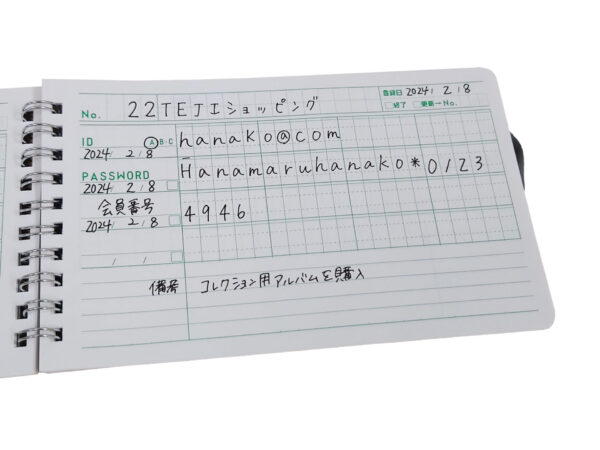 No. 22TEJIショッピング
登録日 2024/ 2 / 8
終了 更新→No.
ID Ⓐ・B・C hanako@com
2024/ 2 / 8
PASSWORD Hanamaruhanako*0123
2024/ 2 / 8
会員番号 4946
2024/ 2 / 8
/ /
備考 コレクション用アルバムを購入